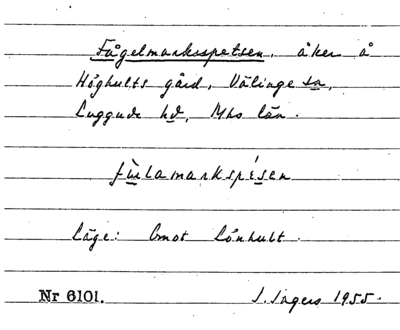 Fågelmarksspetsen, åker å
Höghults gård, Välinge sn,
Luggude hd, Mhs län.
fùɪlamarkspésen
Läge: Emot Lönhult.
Nr 6101. J. Sagers 1955.